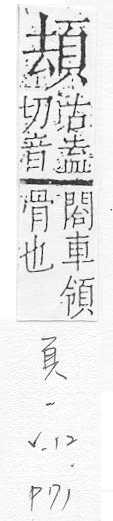 頬
苦盍
切音
閤車領
骨也
頁
-
v.12
P71